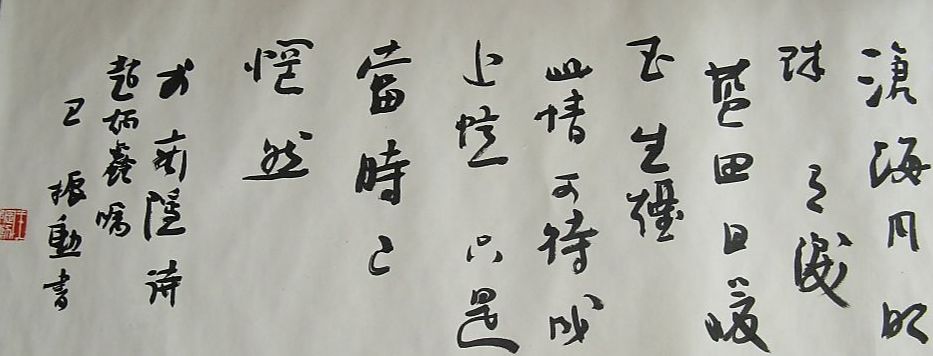 滄海月明
珠有淚
藍田日暖
玉生煙
此情可待成
追憶只是
當時已
惘然
李商隱詩
趙炳鑫囑
振動書